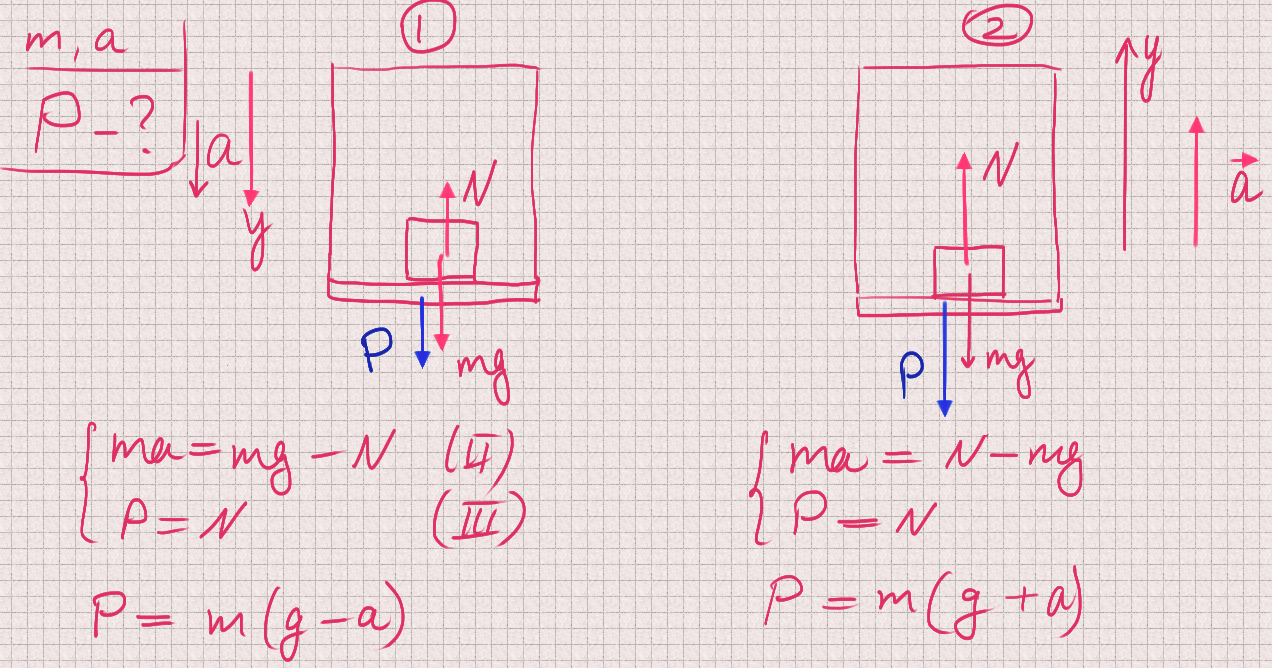 m, a
P - ?
a
y
①
N
P
mg
ma = mg - N (II)
P = N (III)
P = m(g - a)
②
y
N
a⃗
P
mg
ma = N - mg
P = N
P = m(g + a)